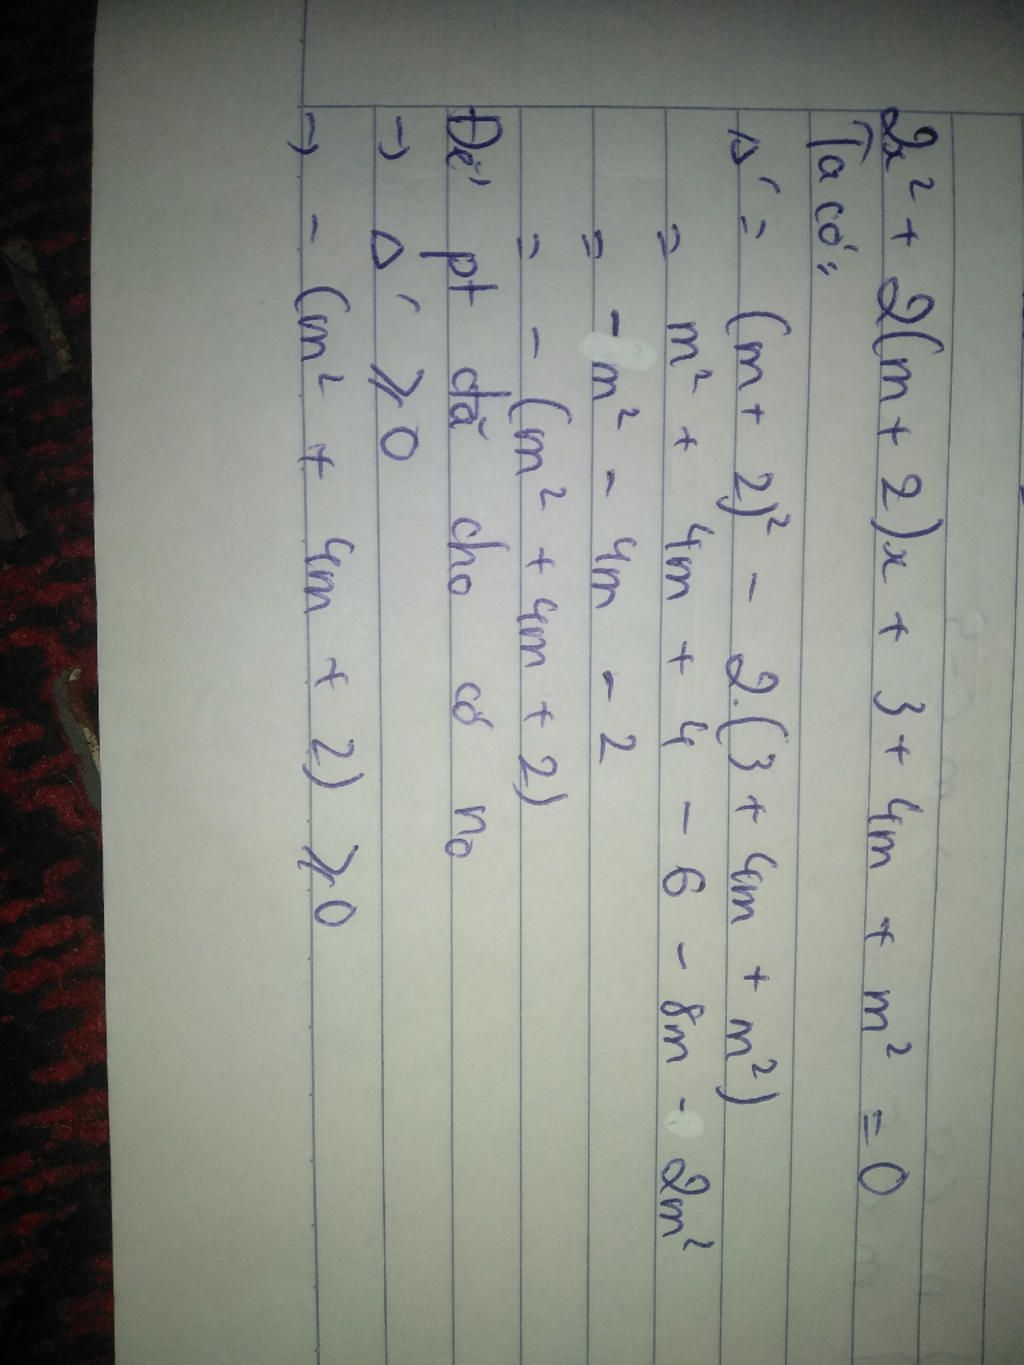 2x² + 2(m + 2)x + 3 + 4m + m² = 0
Ta có:
Δ' = (m + 2)² - 2.(3 + 4m + m²)
= m² + 4m + 4 - 6 - 8m - 2m²
= - m² - 4m - 2
= - (m² + 4m + 2)
Để pt đã cho có n₀
→ Δ' ⩾ 0
→ - (m² + 4m + 2) ⩾ 0